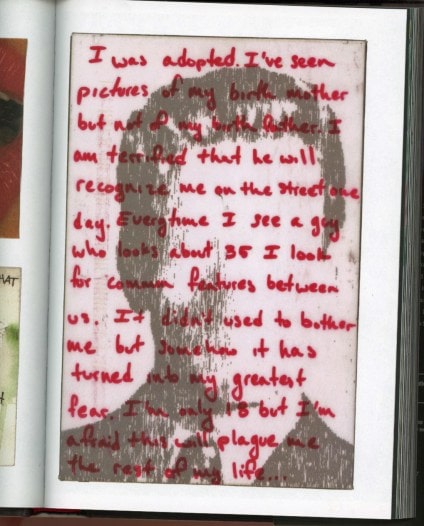 I was adopted. I've seen
pictures of my birth mother
but not of my birth father. I
am terrified that he will
recognize me on the street one
day. Everytime I see a guy
who looks about 35 I look
for common features between
us. It didn't used to bother
me but somehow it has
turned into my greatest
fear. I'm only 18 but I'm
afraid this will plague me
the rest of my life...
HAT